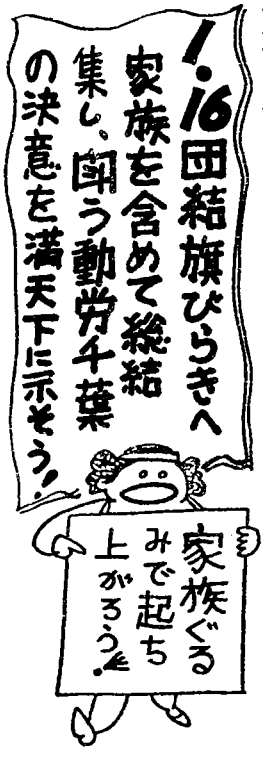 1.16団結旗びらきへ
家族を含めて総結
集し、闘う動労千葉
の決意を満天下に示そう!
家族ぐる
みで起ち
上がろう!!